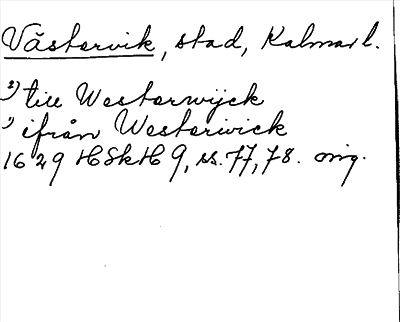 Västervik, stad, Kalmar l.
2) till Westerwijck
1) ifrån Westeriwick
1629 HSkH 9, ss. 77, 78. orig.